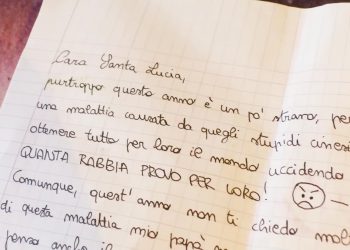 Cara Santa Lucia,
purtroppo questo anno è un po' strano, per
una malattia causata da quegli stupidi cinesi
ottenere tutto per loro il mondo uccidendo
QUANTA RABBIA PROVO PER LORO!
Comunque, quest'anno non ti chiedo molt
di questa malattia mio papà
penso anche il